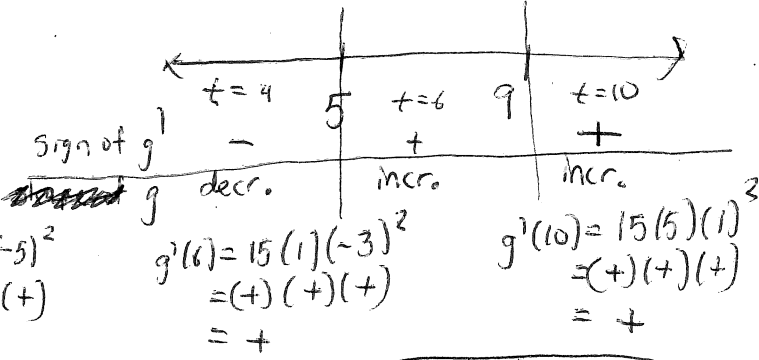 t = 4 5 t=6 9 t=10
sign of g' - + +
g decr. incr. incr.
-5)² g'(6) = 15(1)(-3)² g'(10) = 15(5)(1)³
(+) =(+)(+)(+) =(+)(+)(+)
= + = +